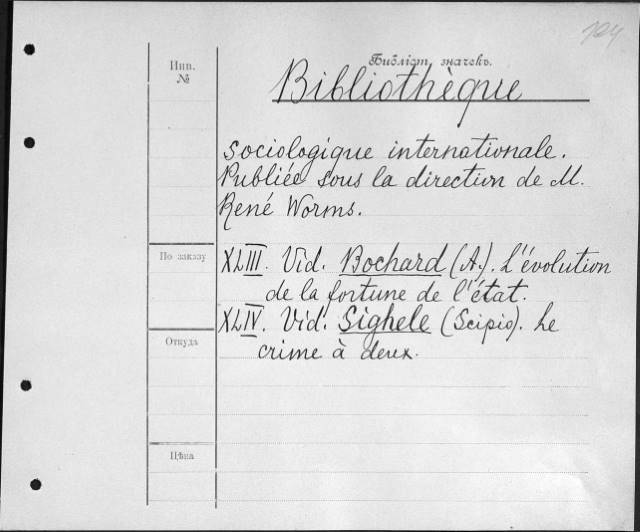 124
Инв.
№
Библіот. значекъ.
Bibliothèque
sociologique internationale.
Publiée sous la direction de M.
René Worms.
По заказу
XLIII. Vid. Bochard (A.). L'évolution
de la fortune de l'état.
XLIV. Vid. Sighele (Scipio). Le
crime à deux.
Откуда
Цѣна